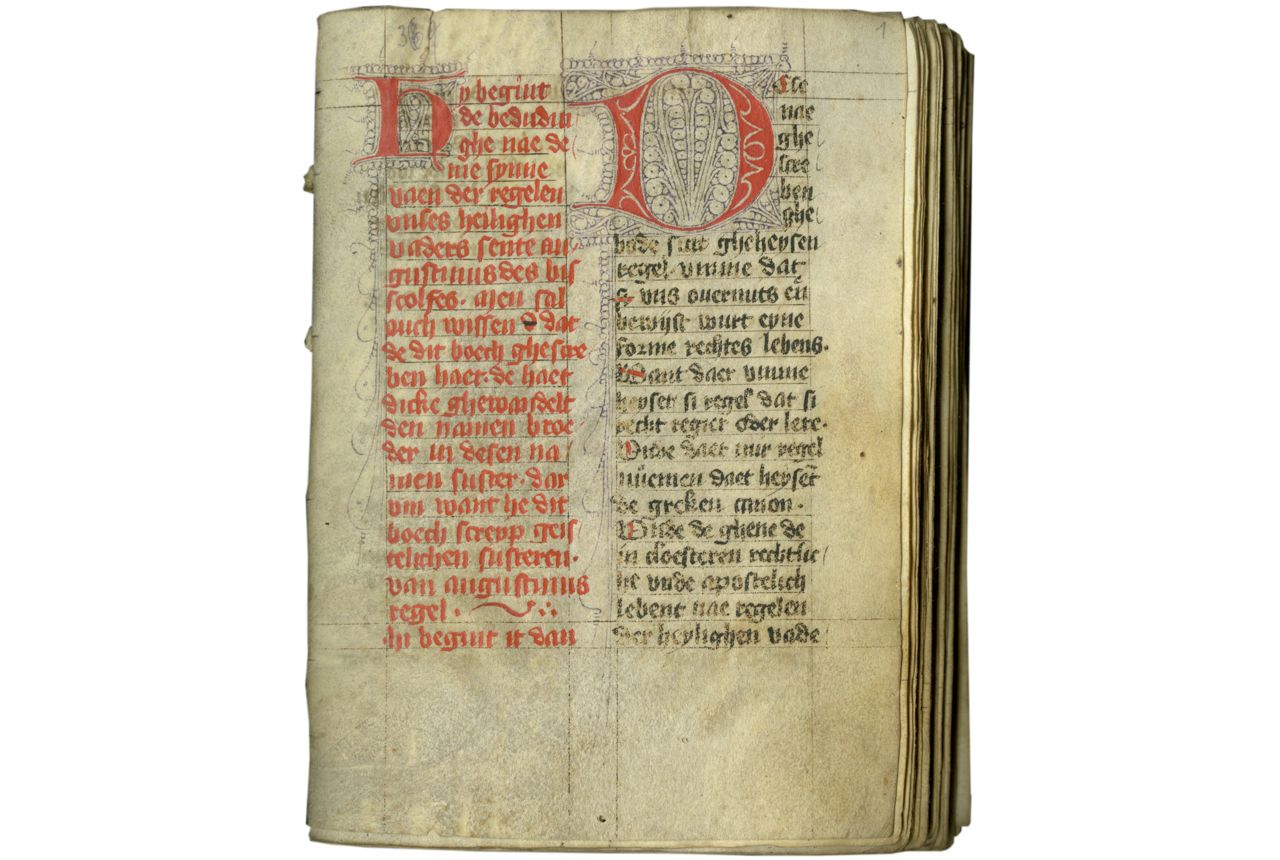 1
Hy begint
de bedudin
ghe nae de
me synne
vaen der regelen
vnses heilighen
vaders sente au
gustinus des bis
scolfes. Men sal
auch wissen dat
de dit boech ghescre
ben haet. de haet
dicke ghewandelt
den namen broe
der in desen na
men suster. dar
vm want he dit
boech screyp geis
telichen susteren.
van augustinus
regel.
Hi begint it dan
Dese
nae
ghe
scre
ben
ghe
bade sint gheheysen
regel. vmme dat
si vns ouermits eñ
bewijst wurt eyne
forme rechtes lebens.
Want daer vmme
heyset si regel dat si
recht regiert oder lere.
Vnde daet wir regel
nůemen daet heyset
de greken canon.
Vnde de ghene de
in cloesteren rechtlic
he vnde apostelich
lebent nae regelen
der heylighen vade